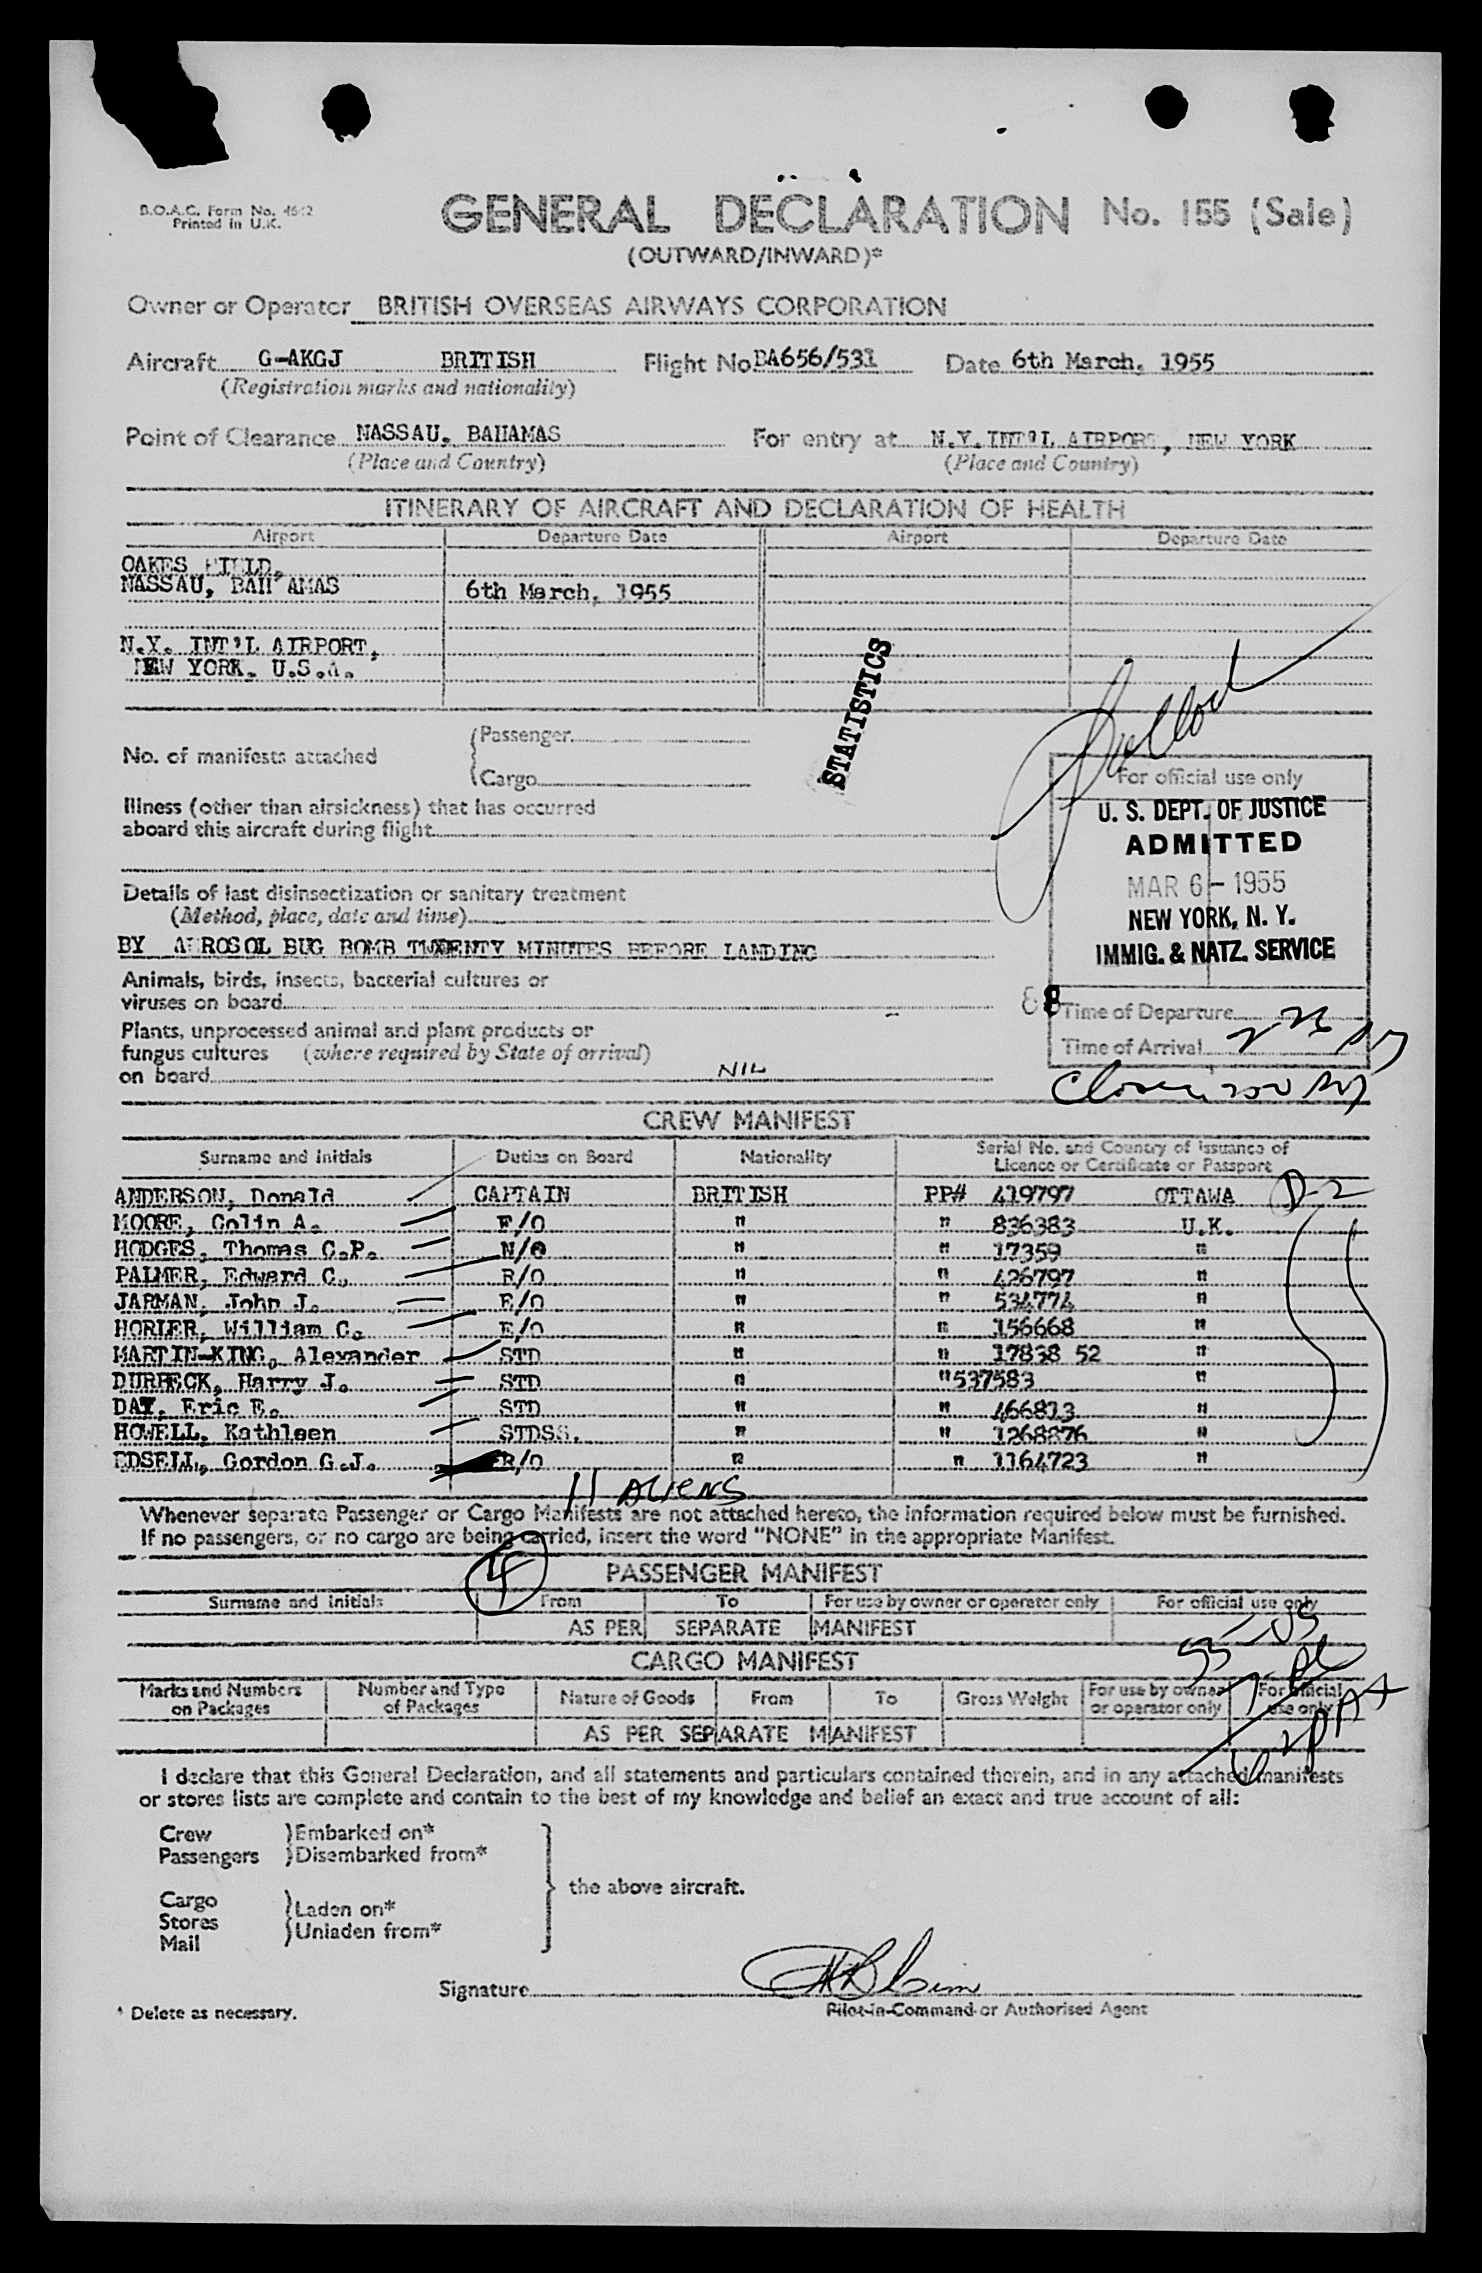 B.O.A.C. Form No. 4642
Printed in U.K.
GENERAL DECLARATION No. 155 (Sale)
(OUTWARD/INWARD)*
Owner or Operator BRITISH OVERSEAS AIRWAYS CORPORATION
Aircraft G-AKGJ BRITISH Flight No BA656/531 Date 6th March, 1955
(Registration marks and nationality)
Point of Clearance NASSAU, BAHAMAS For entry at N.Y. INT'L AIRPORT, NEW YORK
(Place and Country) (Place and Country)
ITINERARY OF AIRCRAFT AND DECLARATION OF HEALTH
Airport Departure Date Airport Departure Date
OAKES FIELD,
NASSAU, BAHAMAS 6th March, 1955
N.Y. INT'L AIRPORT,
NEW YORK. U.S.A.
STATISTICS
No. of manifests attached { Passenger
{ Cargo
For official use only
Illness (other than airsickness) that has occurred
aboard this aircraft during flight
U. S. DEPT. OF JUSTICE
ADMITTED
MAR 6 - 1955
NEW YORK, N. Y.
IMMIG. & NATZ. SERVICE
Details of last disinsectization or sanitary treatment
(Method, place, date and time)
BY AEROSOL BUG BOMB TWXENTY MINUTES BEFORE LANDING
Animals, birds, insects, bacterial cultures or
viruses on board
88
Time of Departure
Plants, unprocessed animal and plant products or
fungus cultures (where required by State of arrival)
on board NIL
Time of Arrival
CREW MANIFEST
Surname and Initials Duties on Board Nationality Serial No. and Country of Issuance of
Licence or Certificate or Passport
ANDERSON, Donald CAPTAIN BRITISH PP# 419797 OTTAWA D-2
MOORE, Colin A. F/O " " 836383 U.K.
HODGES, Thomas C.P. N/O " " 17359 "
PALMER, Edward C. R/O " " 426797 "
JARMAN, John J. E/O " " 534774 "
HORLER, William C. E/O " " 156668 "
MARTIN-KING, Alexander STD " " 17838 52 "
DURBECK, Harry J. STD " "537583 "
DAY, Eric E. STD " " 466813 "
HOWELL, Kathleen STDSS. " " 1268876 "
EDSELL, Gordon G.J. R/O " " 1164723 "
11 ALIENS
Whenever separate Passenger or Cargo Manifests are not attached hereto, the information required below must be furnished.
If no passengers, or no cargo are being carried, insert the word "NONE" in the appropriate Manifest.
4
PASSENGER MANIFEST
Surname and Initials From To For use by owner or operator only For official use only
AS PER SEPARATE MANIFEST
55-US
CARGO MANIFEST
Marks and Numbers on Packages Number and Type of Packages Nature of Goods From To Gross Weight For use by owner or operator only For official use only
AS PER SEPARATE MANIFEST
I declare that this General Declaration, and all statements and particulars contained therein, and in any attached manifests
or stores lists are complete and contain to the best of my knowledge and belief an exact and true account of all:
Crew } Embarked on*
Passengers } Disembarked from*
the above aircraft.
Cargo
Stores } Laden on*
Mail } Unladen from*
Signature
Pilot-in-Command or Authorised Agent
* Delete as necessary.